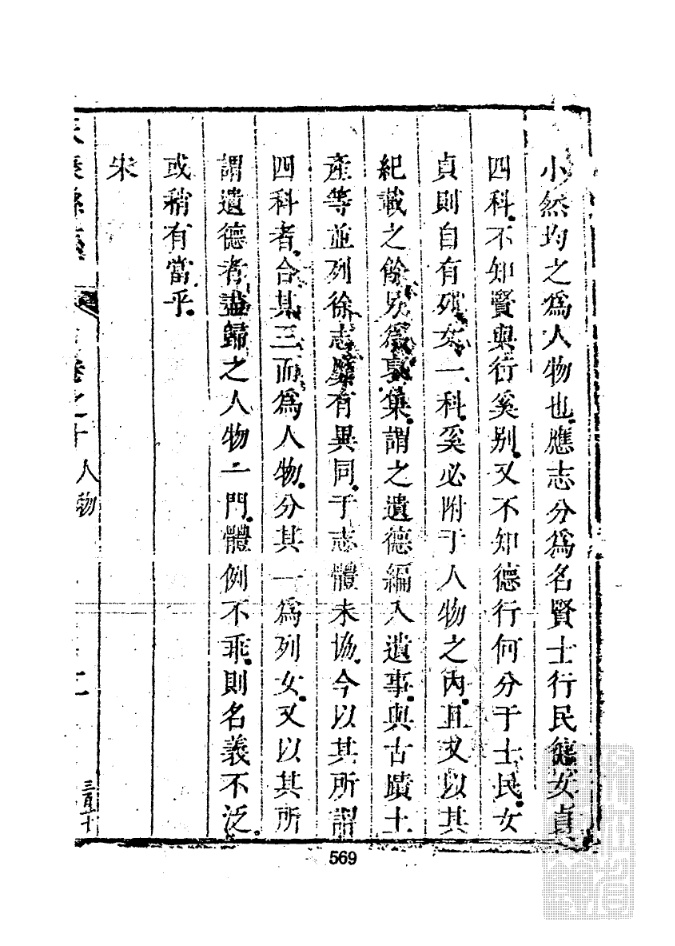 小然均之爲人物也應志分爲名賢士行民德女貞
四科不知賢與行奚别又不知德行何分于士民女
貞則自有列女一科奚必附于人物之内且又以其
紀載之餘另爲裒集謂之遺德編入遺事與古蹟土
產等並列徐志畧有異同于志體未協今以其所謂
四科者合其三而爲人物分其一爲列女又以其所
謂遺德者盡歸之人物一門體例不乖則名義不泛
或稍有當乎
宋
卷之十 人物
569